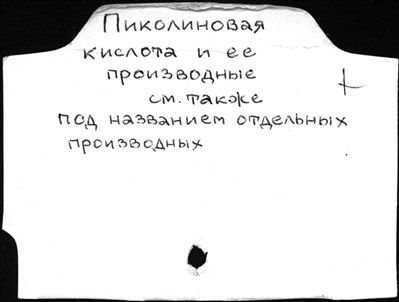 Пиколиновая
кислота и ее
производные
см. также
под названием отдельных
производных